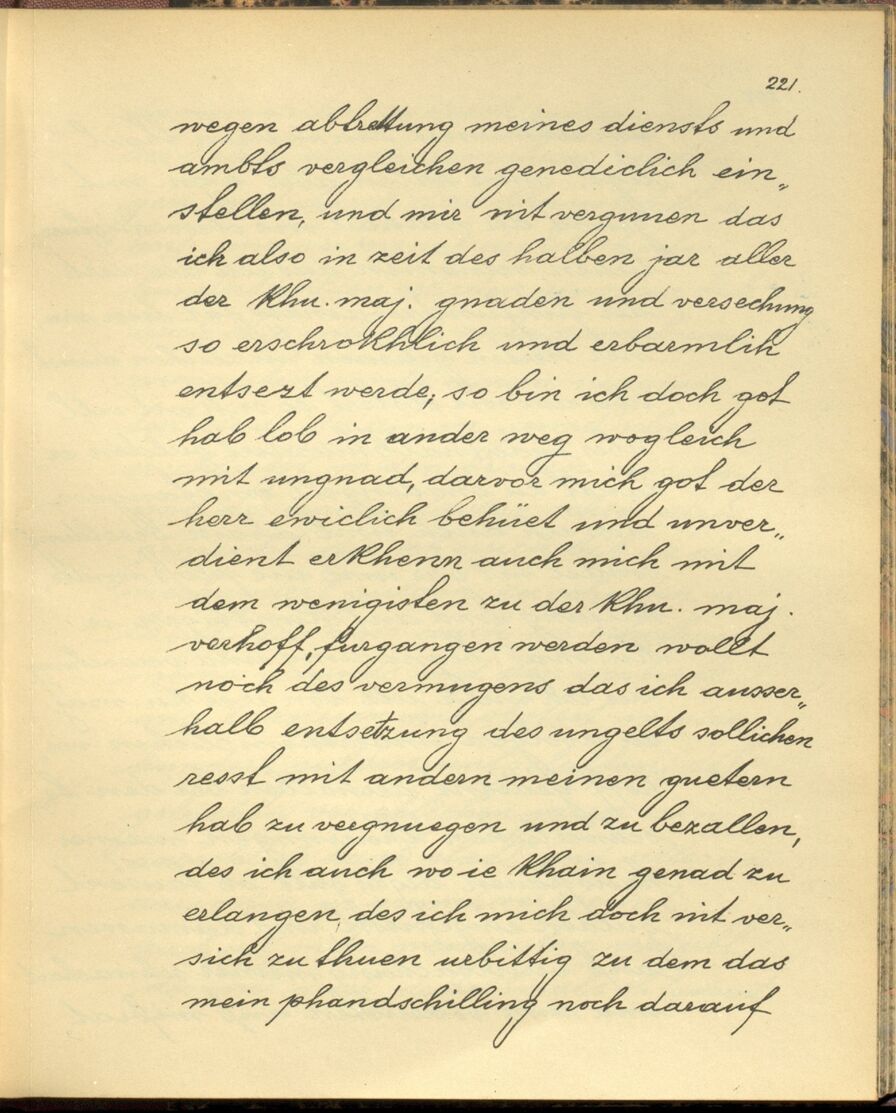 221.
wegen abtrettung meines diensts und
ambts vergleichen genediclich ein„
stellen, und mir nit vergunen das
ich also in zeit des halben jar aller
der khu. maj. gnaden und versechung
so erschrokhlich und erbarmlih
entsezt werde; so bin ich doch got
hab lob in ander weg wogleich
mit ungnad, darvor mich got der
herr ewiclich behüet und unver„
dient erkhenn auch mich mit
dem wenigisten zu der khu. maj.
verhoff, furgangen werden wollt
noch des vermugens das ich ausser„
halb entsetzung des ungelts sollichen
resst mit andern meinen guetern
hab zu vergnuegen und zu bezallen,
des ich auch wo ie khain genad zu
erlangen, des ich mich doch nit ver„
sich zu thuen urbittig zu dem das
mein phandschilling noch darauf